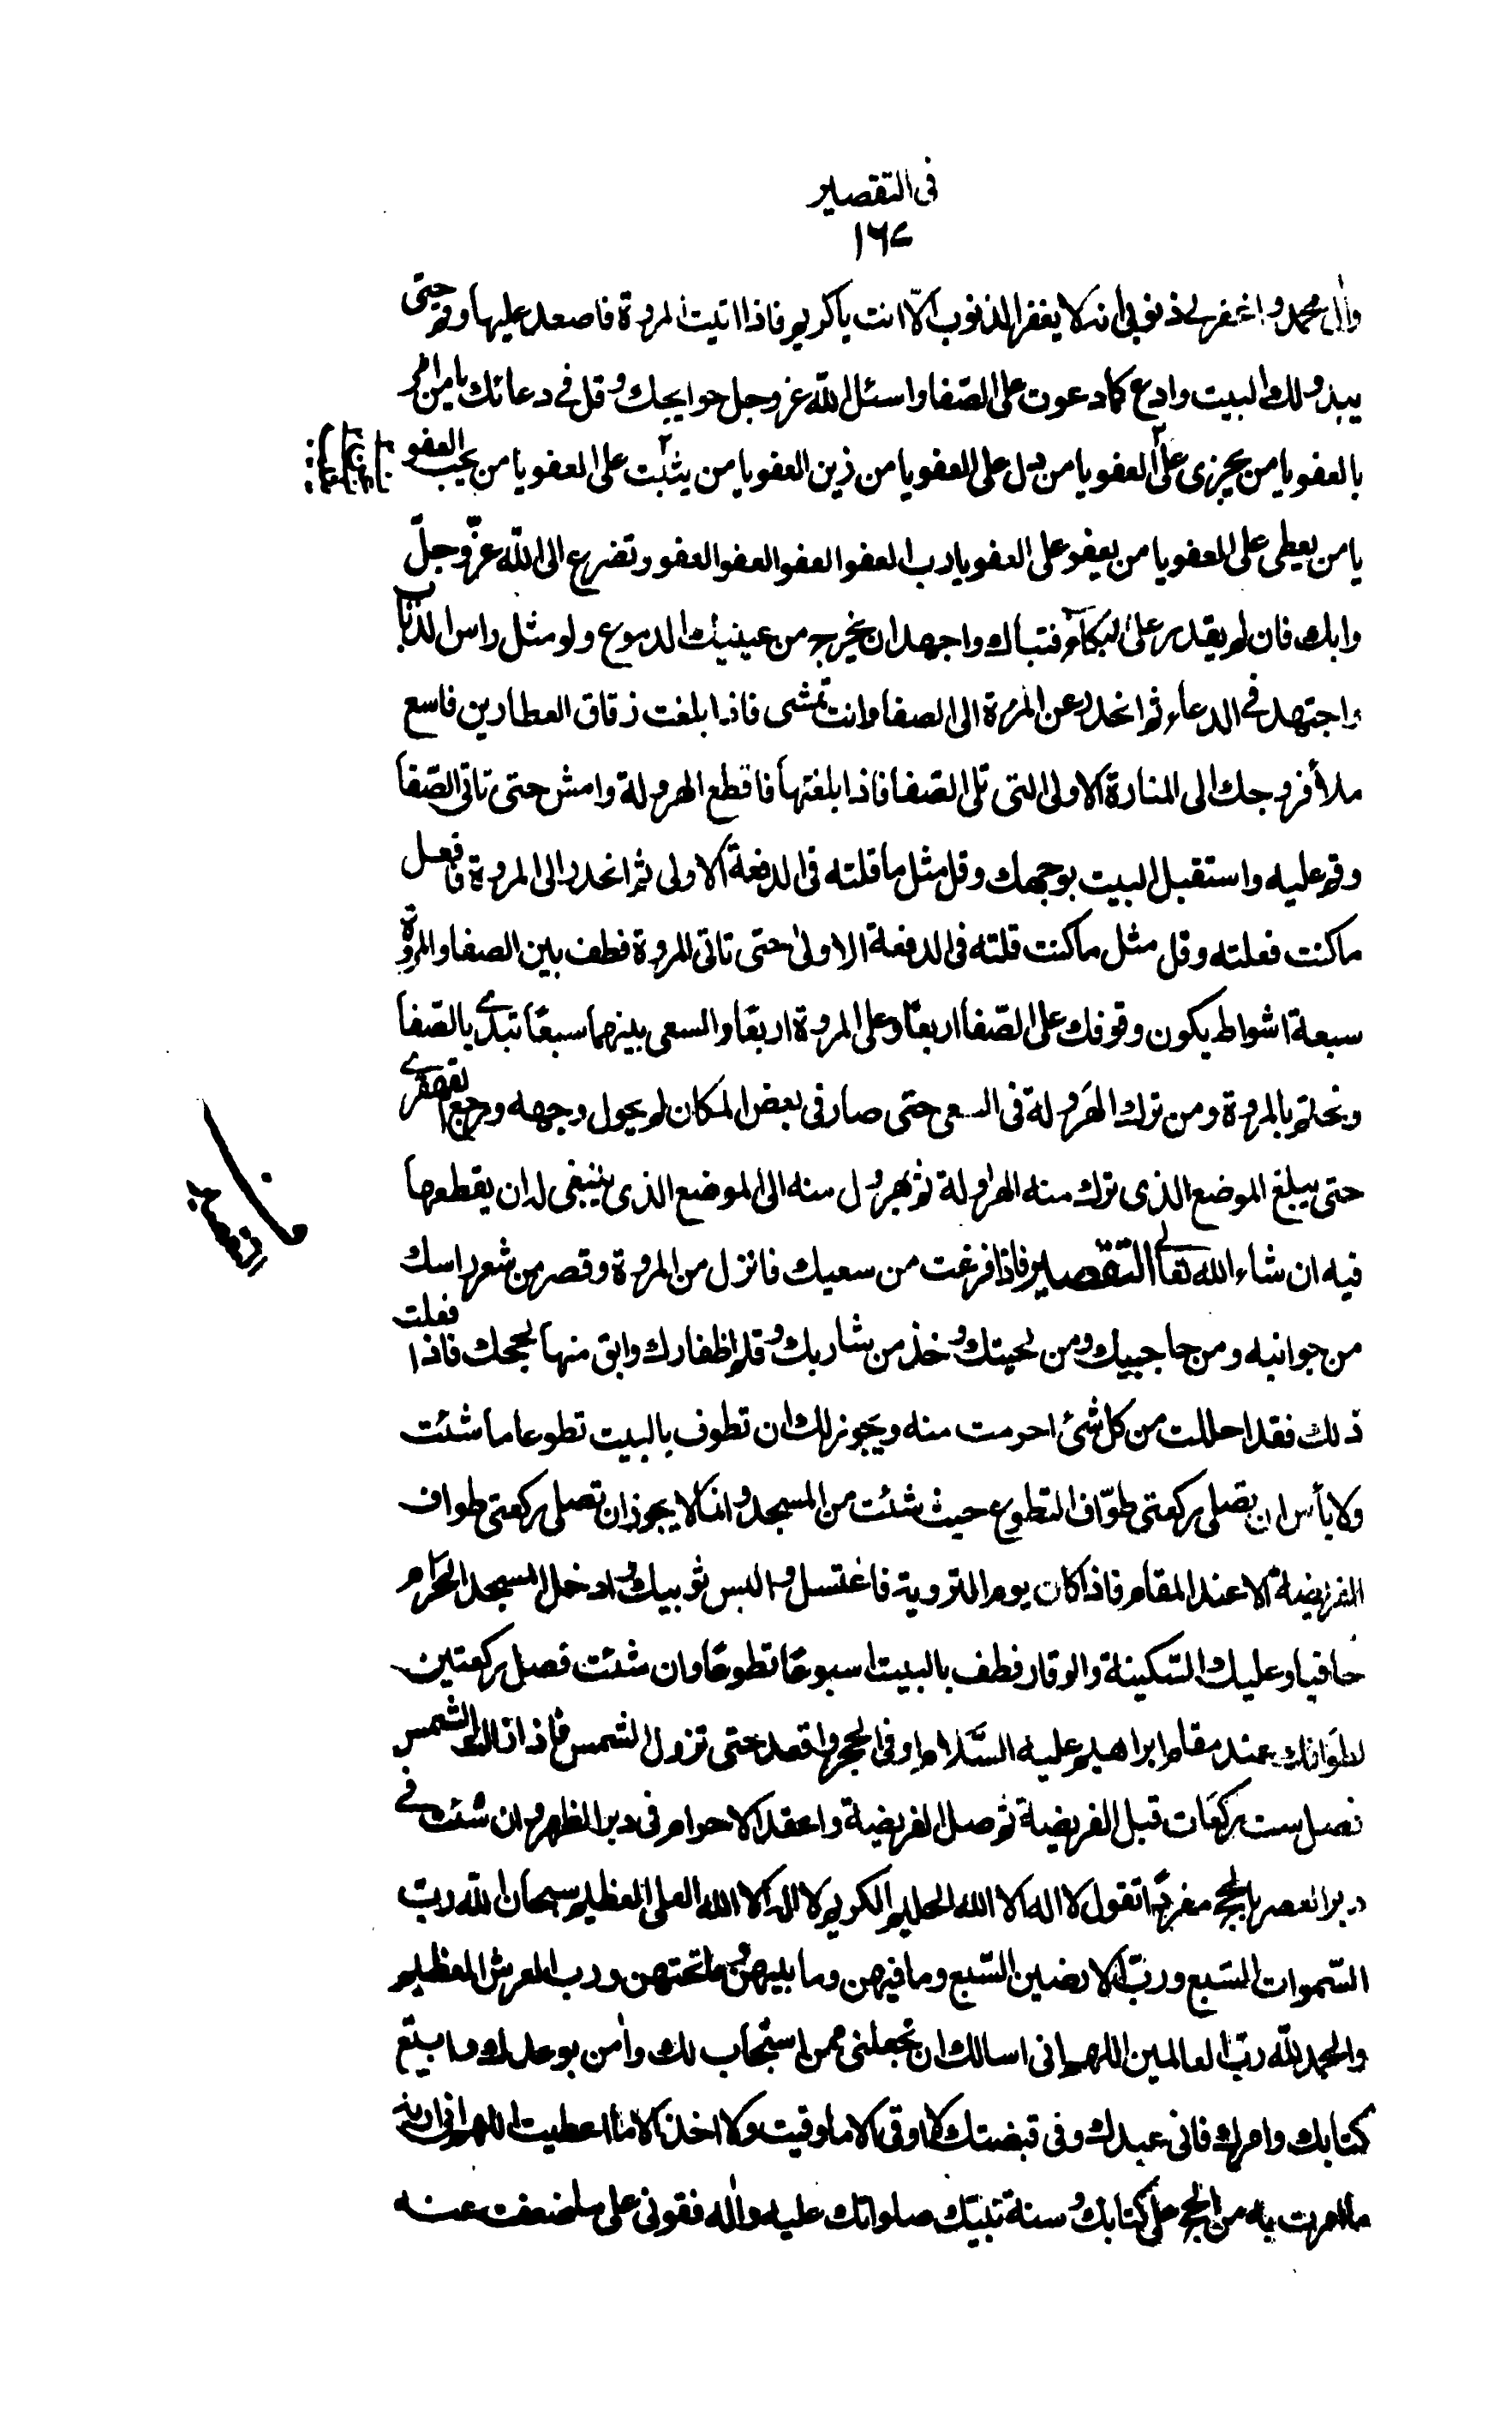 فى التقصير
١٦٧
وآل محمد واغفرلى ذنوبى انه لا يغفر الذنوب الّا انت يا كريم فاذا اتيت المروة فاصعد عليها وقم حتى
يبدو لك البيت وادع كما دعوت على الصّفا واسئل اللّه عز وجل حوايجك وقل فى دعائك يا من امر
بالعفو يا من يجزى على العفو يا من دل على العفو يا من زين العفو يا من يثبت على العفو يا من يحب العفو
يا من يعطى على العفو يا من يعفو على العفو يا رب العفو العفو العفو العفو وتضرع الى اللّه عزّ وجلّ
وابك فان لم يقدر على البكاء فتباك واجهد ان يخرج من عينيك الدموع ولو مثل راس الذباب
واجتهد فى الدعاء ثم انحدر عن المروة الى الصفا وانت تمشى فاذا بلغت زقاق العطارين فاسع
ملأ فروجك الى المنارة الاولى التى تلى الصّفا فاذا بلغتها فاقطع الهرولة وامش حتى تاتى الصّفا
وقم عليه واستقبل البيت بوجهك وقل مثل ما قلته فى الدفعة الاولى ثم انحدر الى المروة فافعل
ما كنت فعلته وقل مثل ما كنت قلته فى الدفعة الاولى حتى تاتى المروة فطف بين الصفا والمروة
سبعة اشواط يكون وقوفك على الصّفا اربعًا وعلى المروة اربعًا والسعى بينهما سبعًا تبدى بالصّفا
وتختم بالمروة ومن ترك الهرولة فى السعى حتى صار فى بعض المكان لم يحول وجهه ورجع القهقرى
حتى يبلغ الموضع الذى ترك منه الهرولة ثم يهرول منه الى الموضع الذى ينبغى له ان يقطعها
فيه ان شاء الله تعالى التقصير فاذا فرغت من سعيك فانزل من المروة وقصر من شعر راسك
من جوانبه ومن حاجبيك ومن لحيتك وخذ من شاربك وقلم اظفارك وابق منها لحجك فاذا فعلت
ذلك فقد احللت من كل شئ احرمت منه ويجوز لك ان تطوف بالبيت تطوعا ما شئت
ولا بأس ان تصلى ركعتى طوّاف التطوع حيث شئت من المسجد وانما لا يجوز ان تصلى ركعتى طواف
الفريضة الا عند المقام فاذا كان يوم التروية فاغتسل والبس ثوبيك وادخل المسجد الحرام
حافيا وعليك السّكينة والوقار فطف بالبيت اسبوعًا تطوعًا وان شئت فصل ركعتين
لطوافك عند مقام ابراهيم عليه السَّلام او فى الحجر واقعد حتى تزول الشمس فاذا زالت الشمس
فصل ست ركعات قبل الفريضة ثم صل الفريضة واعقد الاحرام فى دبر الظهر وان شئت فى
دبر العصر بالحج مفردًا تقول لا اله الا الله الحليم الكريم لا اله الا الله العلى العظيم سبحان اللّه ربّ
السّموات السّبع وربّ الارضين السّبع وما فيهن وما بينهن وما تحتهن ورب العرش العظيم
والحمد للّه ربّ العالمين اللهم انى اسالك ان تجعلنى ممن استجاب لك وآمن بوعدك واتبع
كتابك وامرك فانى عبدك وفى قبضتك لا اوقى الا ما وقيت ولا اخذ الا ما اعطيت اللهم انى اريد
ما امرت به من الحج على كتابك وسنة نبيّك صلواتك عليه وآله فقونى على ما ضعفت عنه